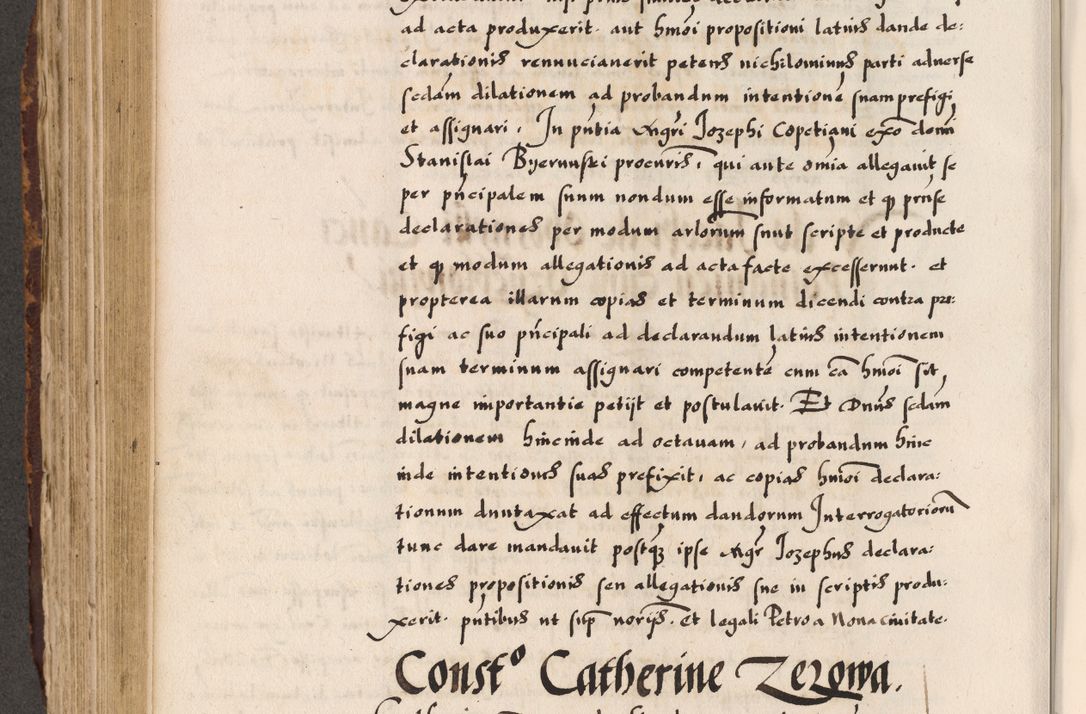 ad acta produxerit. aut hmoi propositioni latius dande de:
clarationis rennucianerit petens nichilominus parti aduerse
scdam dilationem ad probandum intentione suam prefigi
et assignari, In pntia Mgri Iozephi Copetiani exo domi
Stanislai Byernuski procuris, qui ante omia allegauit se
per pncipalem suum nondum esse informatum et q prnse
declarationes per modum arlorum sunt scripte et producte
et q modum allegationis ad acta facte excesserunt. et
propterea illarum copias et terminum dicendi contra pre:
figi ac suo pncipali ad declarandum latius intentionem
suam terminum assignari competente cum ca hmoi sit
magne importantie petijt et postulauit. Et Dnus scdam
dilationem hincinde ad octauam, ad probandum hinc
inde intentiones suas prefixit, ac copias hmoi declara:
tionum duntaxat ad effectum dandorum Interrogatoriorum
tunc dare mandauit postqz ipse Mgr Iozephus declara:
tiones propositionis seu allegationis sue in scriptis produ:
xerit. pntibus ut sup noriis. Et legali Petro a Nona ciuitate.
Const° Catherine Zerowa.